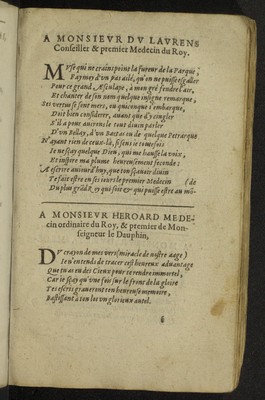 A MONSIEVR DV LAVRENS
Conseiller & premier Medecin du Roy.
MVse qui ne crains point la fureur de la Parque,
Fay moy d'vn pas ailé, qu'on ne puisse egaller
Pour ce grand Æsculape, à mon gré fendre l'air,
Et chanter de son nom quelque insigne remarque,
Ses vertus se sont mers, ou quiconque s'embarque,
Doit bien considerer, auant que d'y cingler
S'il a pour auirons le tout diuin parler
D'vn Bellay, d'vn Bartas ou de quelque Petrarque
N'ayant rien de ceux-là, si sens ie toutesfois
Ie ne sçay quelque Dieu, qui me hausse la voix,
Et inspire ma plume heureusement feconde:
A escrire auiourd'huy, que ton sçauoir diuin
Te fait estre en ses iours le premier Medecin (de
Du plus grãd Roy qui soit & qui puisse estre au mõ-
A MONSIEVR HEROARD MEDE-
cin ordinaire du Roy, & premier de Mon-
seigneur le Dauphin,
DV crayon de mes vers (miracle de nostre aage)
Ie n'entends de tracer cest heureux aduantage
Que tu as eu des Cieux pour te rendre immortel,
Car ie sçay qu'vne fois sur le front de la gloire
Tes escris graueront ton heureuse memoire,
Bastissant à ton los vn glorieux autel.